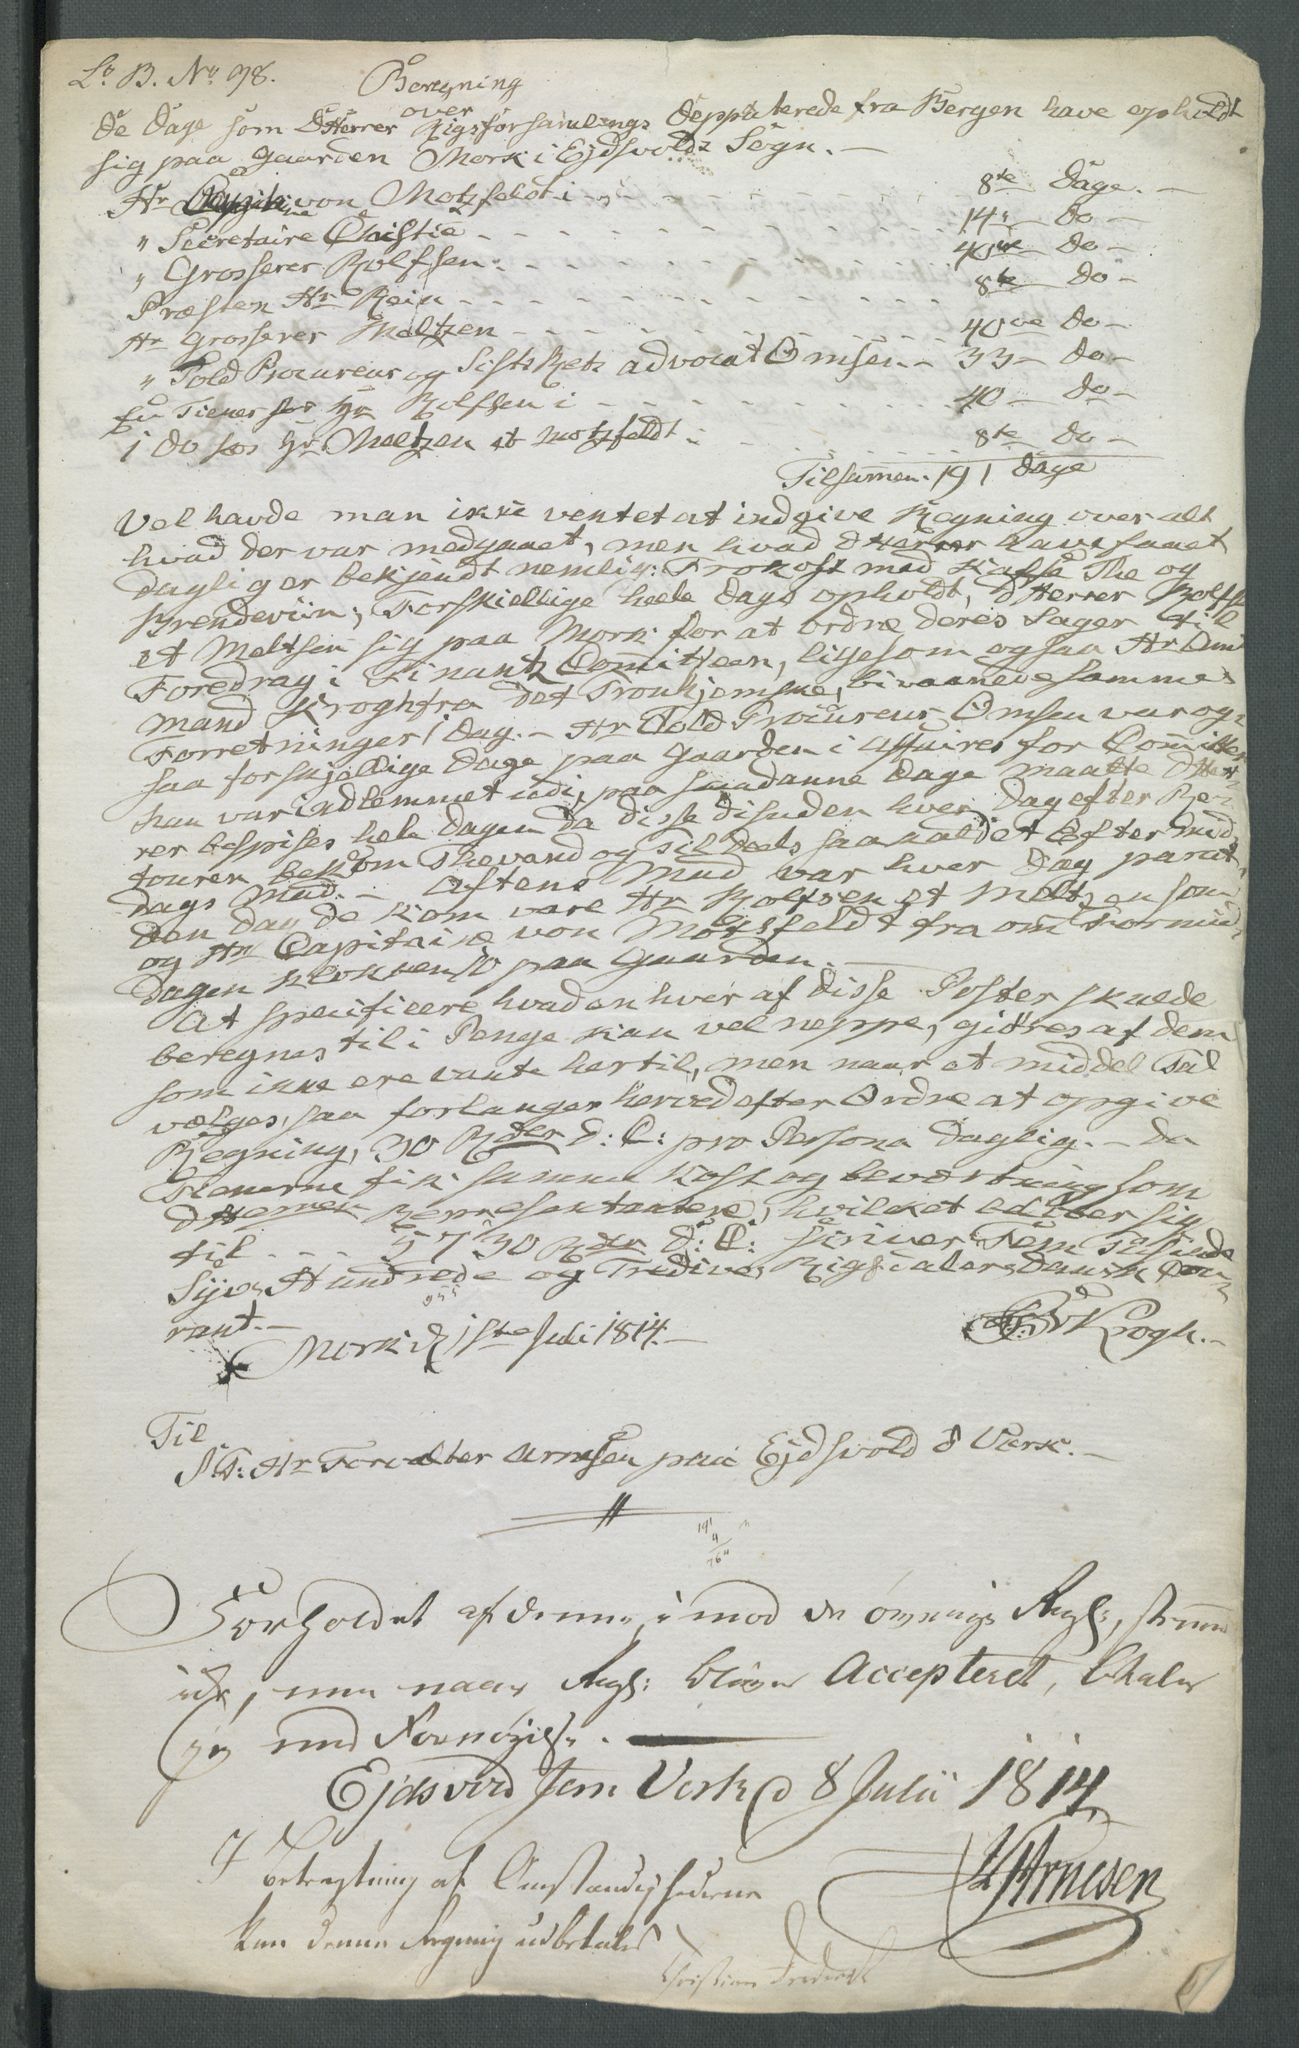 Lt. B. No 98.
Beregning
over
de Dage som DHerrer Rigsforsamlings Depputerede fra Bergen have opholdt
sig paa Gaarden Mork i Ejdsvolds Sogn. —
Hr Capitaine von Motzfeldt i - - 8te Dage. —
" Secretaire Christie - - - - 14 " do —
" Grosserer Rolfsen - - - - 40ve do —
Præsten Hr Rein - - - - 8te do —
Hr Grosserer Meltzen - - - - 40ve do —
" Told Procureur og Stifts Retz advocat Omsen - 33 — do —
En Tiener hos Hr Rolfsen i - - - 40 — do —
1 do hos Hr Meltzen et Motzfeldt - - - 8te do —
Tilsamen. 191 Dage
Vel havde man ikke ventet at indgive Regning over alt
hvad der var medgaaet, men hvad DHerrer have faaet
daglig er bekjendt nemlig: Frokost med Kaffe The og
Brendeviin; Forskiellige heele Dage opholdt, DHerrer Rolfsen
et Meltsen sig paa Mork for at ordne deres Sager til
Foredrag i Finantz Comitteen, ligesom ogsaa Hr Amt
mand Krogh fra det Tronhjemske, bivaanede sammes
Forretninger 1 Dag. — Hr Told Procureur Omsen var og-
saa forskjellige Dage paa Gaarden i Affaires for Comitteen
han var indlemmet udi, paa saadanne Dage maatte DHer-
rer bespises hele Dagen da disse disuden hver Dag efter Re-
touren bekom Thevand og til deels saakaldet Efter mid-
dags Mad. — Aftens Mad var hver Dag parat
den Dag de kom vare Hr Rolfsen et Meltzen som
og Hr Capitaine von Motzfeldt fra om Formid-
dagen Klokken 10 paa Gaarden. —
At specificere hvad enhver af disse Poster skulde
beregnes til i Penge kan vel neppe, giøres af dem
som ikke ere vante hertil, men naar et middel Tal
vælges, saa forlanger herved efter Ordre at opgive
Regning, 30 Rder d: C: pro Persona Daglig. — Da
Tienerne fik samme Kost og beværtning som
DHerrer Representantere, hvilket beløber sig
til - - - 5730 Rdr D: C: skriver Fem Tusinde
Syv Hundrede og Tredive Rigsdaler Dansk Cou-
rant. —
Mork d 1ste Juli 1814. — Krogh. —
Til
S: T: Hr Forvalter Arnesen paa Ejdsvold s Værk. —
191
4
764
Forholdet af denne, i mod de øvrige Regl:, stemmer
ikke, men naar Regl: bliver Accepteret, betaler
jeg med Fornøyelse. —
Ejdsvold Jern Verk d 8 Julii 1814
Arnesen
I betragtning af Omstændighederne
kan denne Regning udbetales
Christian Frederik